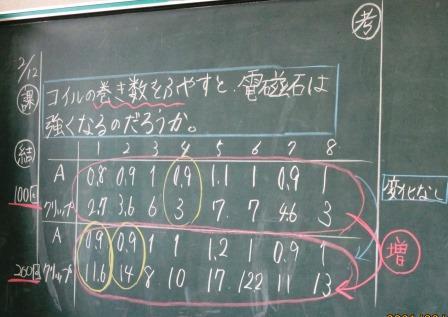 考
2/12
課
コイルの巻き数をふやすと、電磁石は
強くなるのだろうか。
結
1 2 3 4 5 6 7 8
100回
A 0.8 0.9 1 0.9 1.1 1 0.9 1
クリップ 2.7 3.6 6 3 7. 7 4.6 3
変化なし
A 0.9 0.9 1 1 1.2 1 0.9 1
増
200回
クリップ 11.6 14 8 10 17. 122 11 13